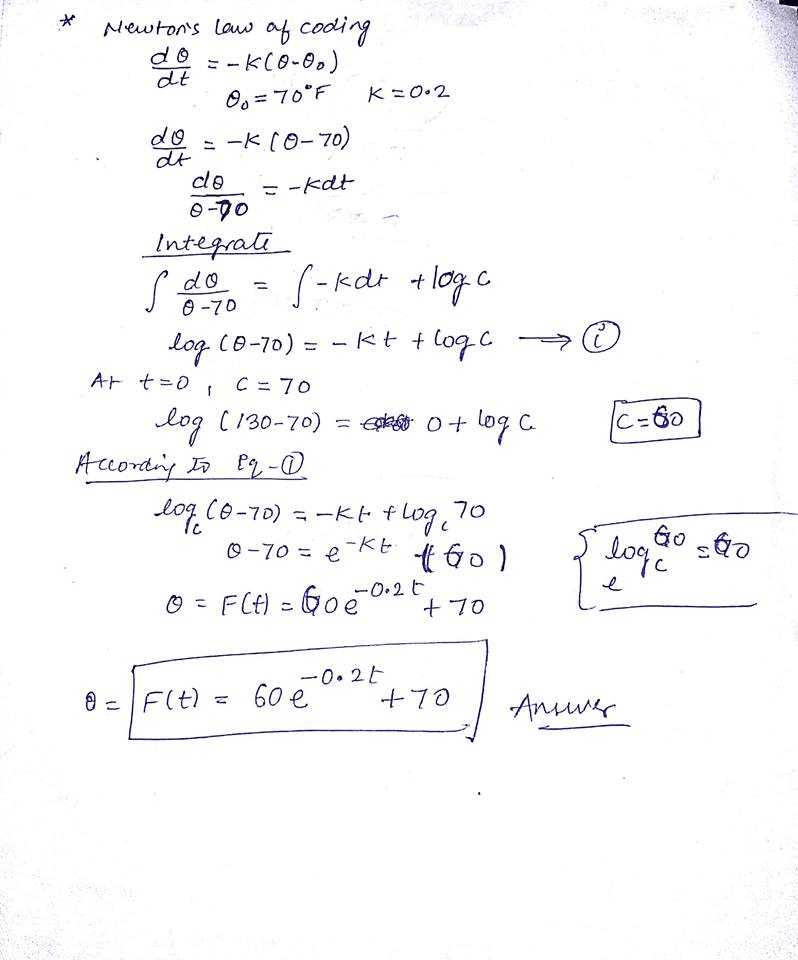 * Newton's law of coding
dθ/dt = -K(θ-θ₀)
θ₀ = 70°F K = 0.2
dθ/dt = -K(θ-70)
dθ/(θ-70) = -Kdt
Integrate
∫ dθ/(θ-70) = ∫-Kdt + log C
log (θ-70) = -Kt + log C ⟶ (i)
At t=0, C = 70
log (130-70) = 0 + log C C=60
According to Eq-(i)
log_e (θ-70) = -Kt + log_e 70
θ-70 = e^{-Kt} (60)
{ e^{log_e 60} = 60
θ = F(t) = 60e^{-0.2t} + 70
θ = F(t) = 60e^{-0.2t} + 70 Answer